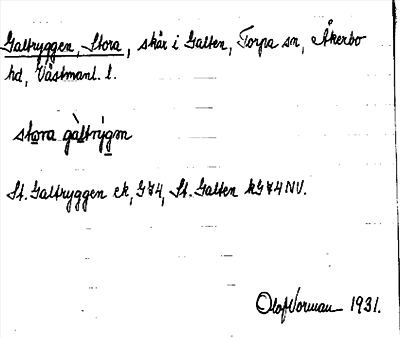 Galtryggen, Stora, skär i Galten, Torpa sn, Åkerbo
hd, Västmanl. l.
stora gàltrýgm
St. Galtryggen ek, G74, St. Galten kG74NV.
Olof Vorman 1931.